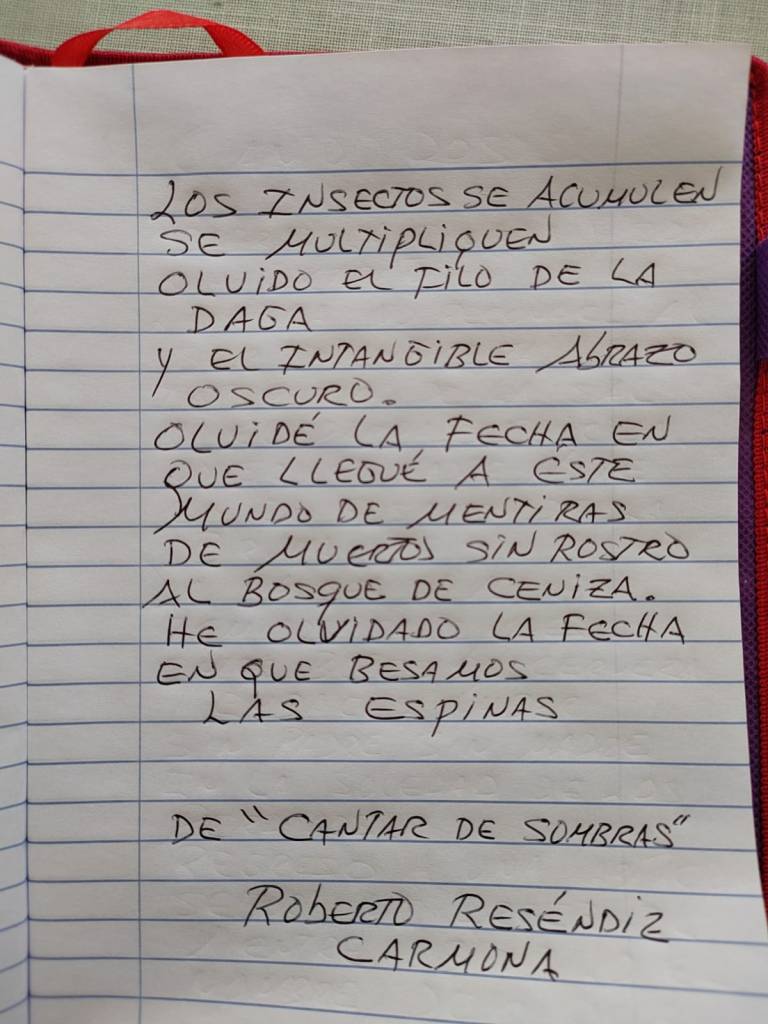 LOS INSECTOS SE ACUMULEN
SE MULTIPLIQUEN
OLVIDO EL FILO DE LA
DAGA
Y EL INTANGIBLE ABRAZO
OSCURO.
OLVIDÉ LA FECHA EN
QUE LLEGUÉ A ESTE
MUNDO DE MENTIRAS
DE MUERTOS SIN ROSTRO
AL BOSQUE DE CENIZA.
HE OLVIDADO LA FECHA
EN QUE BESAMOS
LAS ESPINAS
DE "CANTAR DE SOMBRAS"
ROBERTO RESÉNDIZ
CARMONA